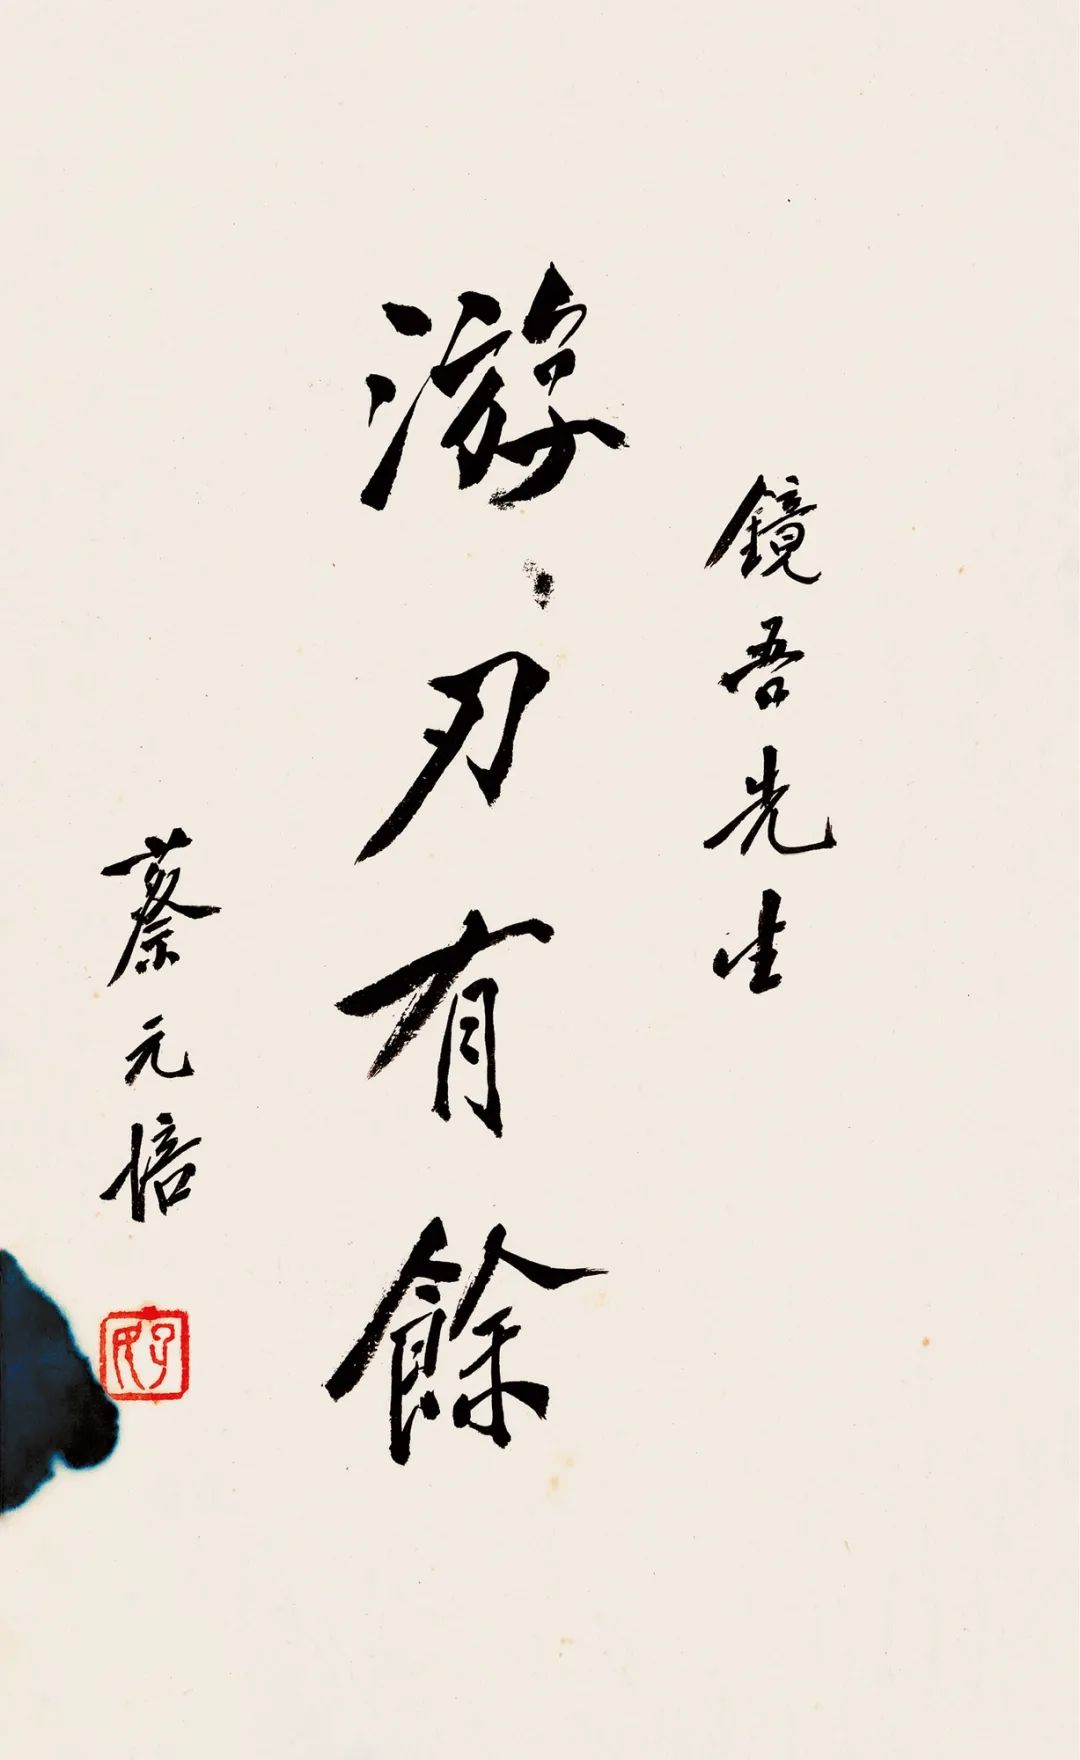 鏡吾先生
游刃有餘
蔡元培
孑民